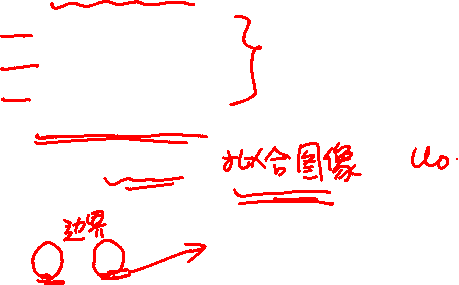 拟合图像 u₀.
边界